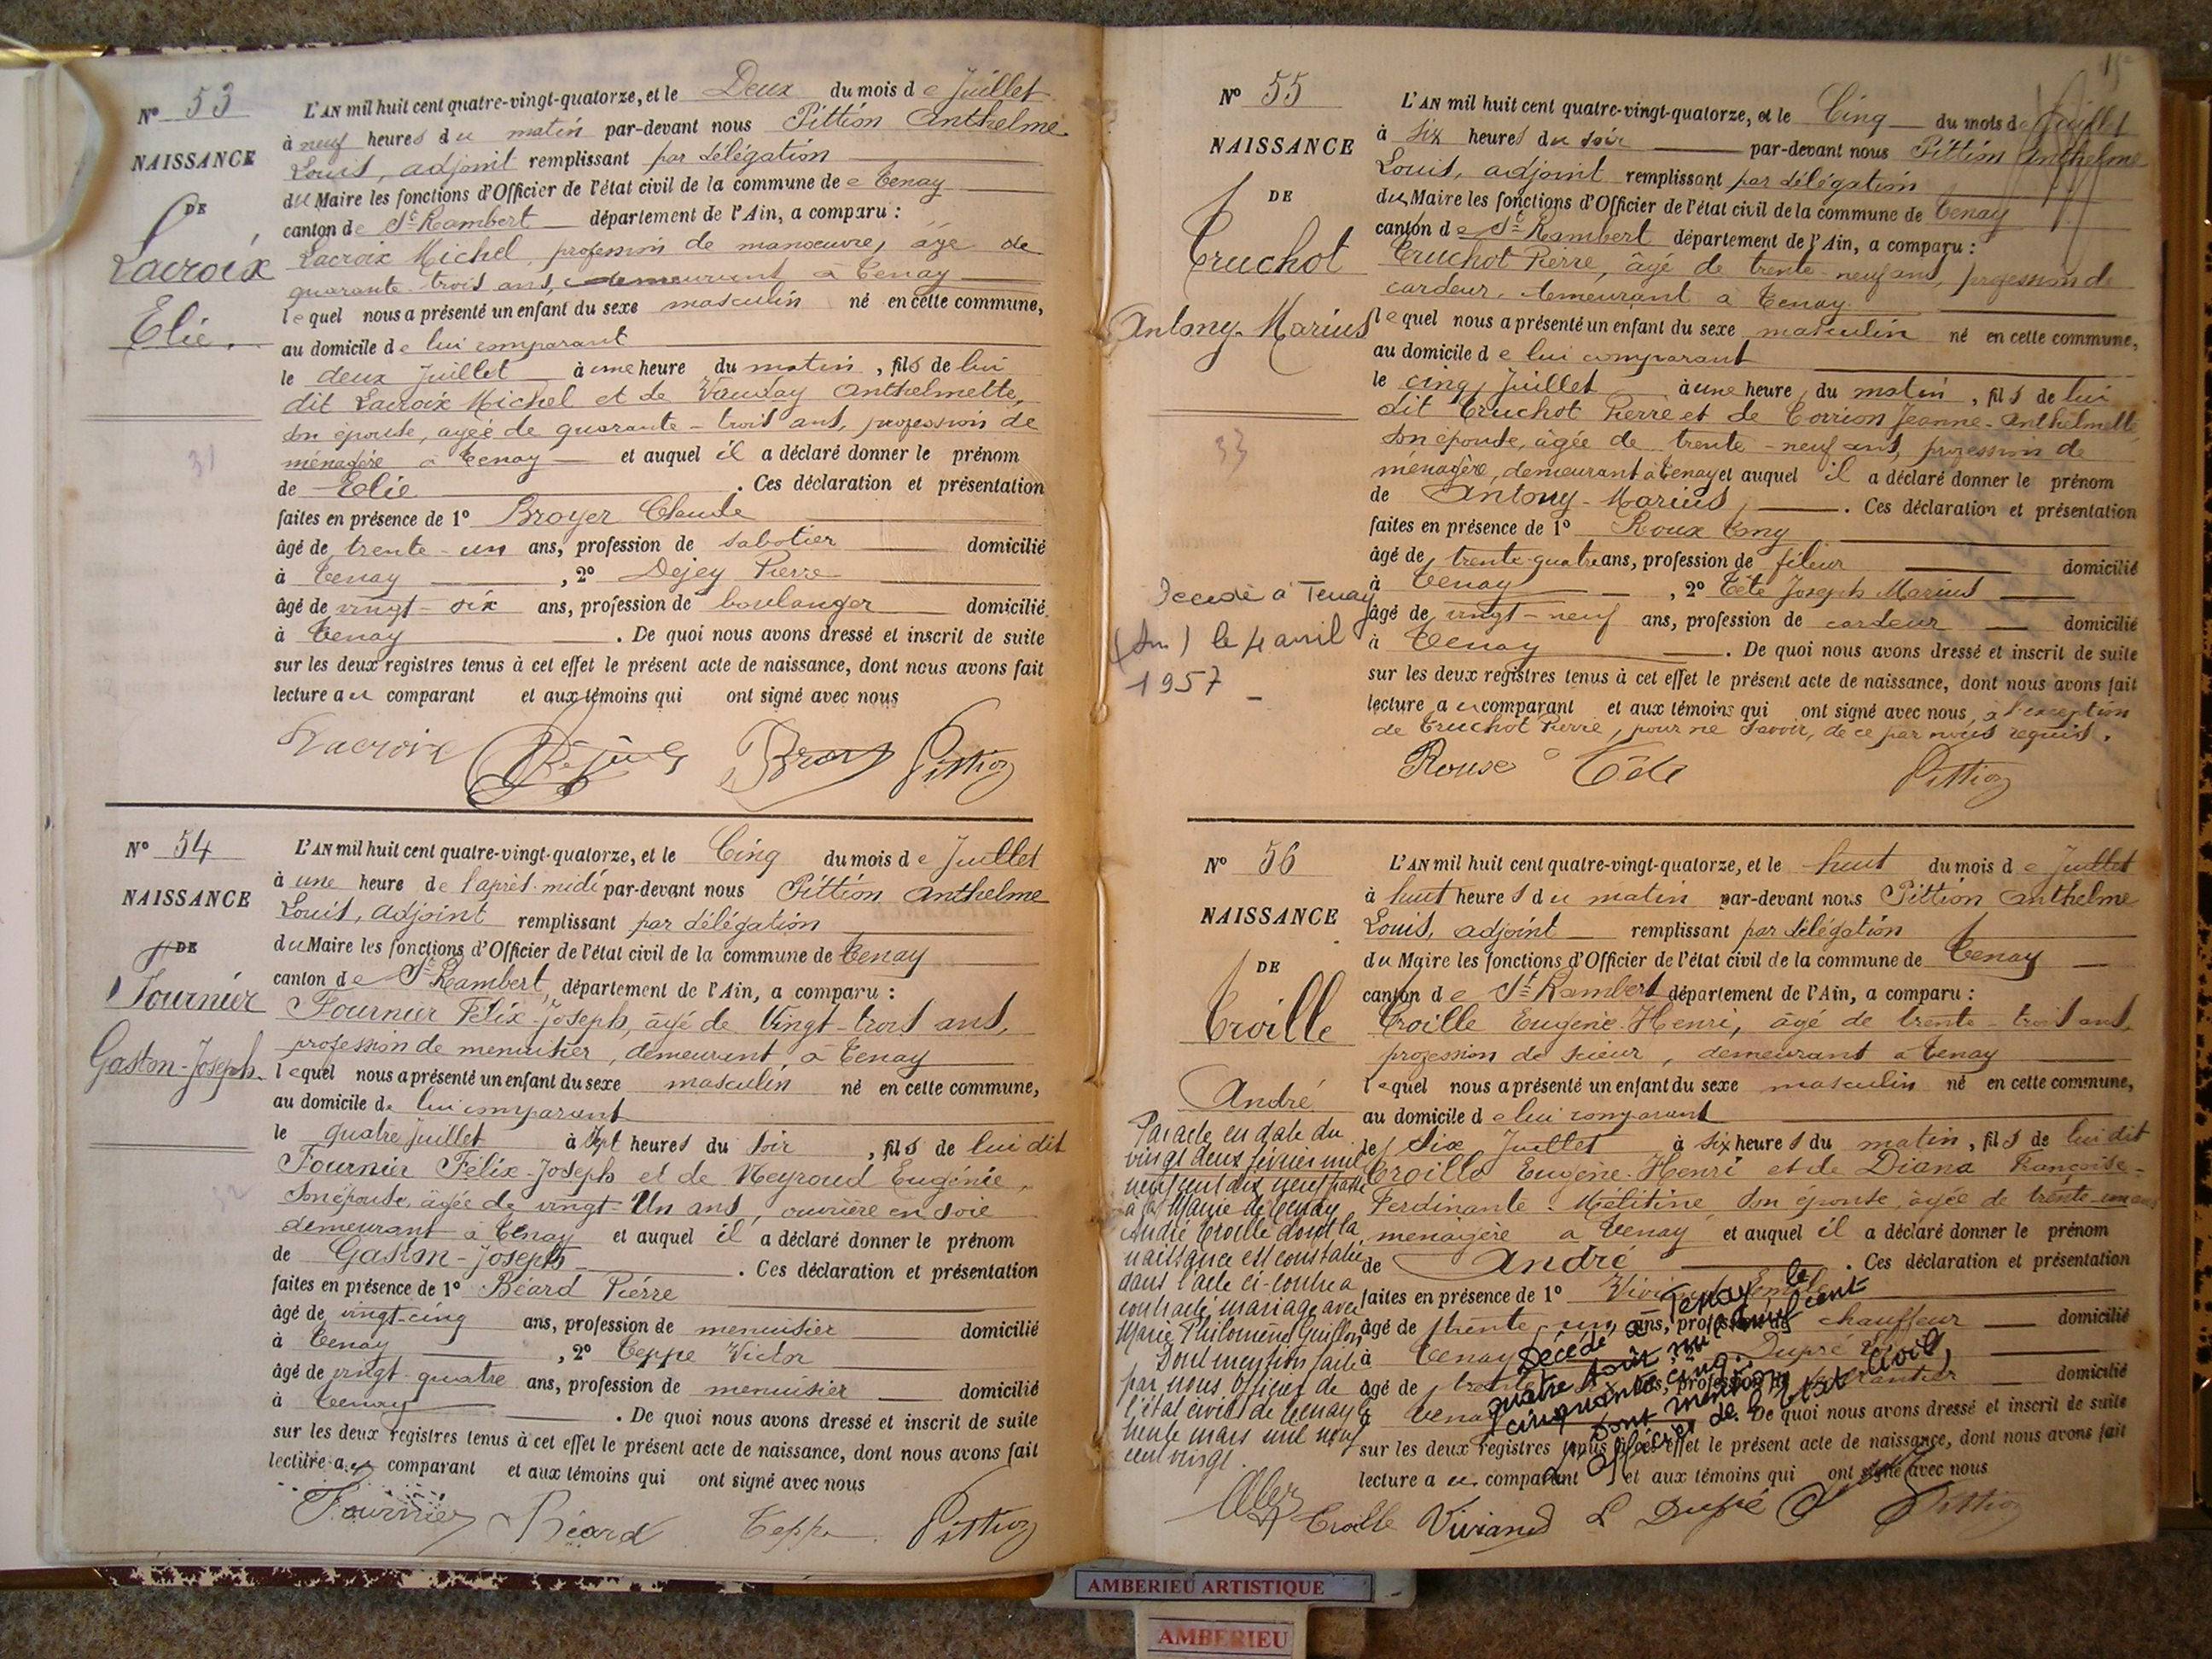 N° 53
NAISSANCE
DE
Lacroix
Elie.
L'AN mil huit cent quatre-vingt-quatorze, et le Deux du mois de Juillet
à neuf heures du matin par-devant nous Pittion Anthelme
Louis, adjoint remplissant par délégation
du Maire les fonctions d'Officier de l'état civil de la commune de Tenay
canton de St Rambert département de l'Ain, a comparu :
Lacroix Michel, profession de manoeuvre, âgé de
quarante-trois ans, demeurant à Tenay
lequel nous a présenté un enfant du sexe masculin né en cette commune,
au domicile de lui comparant
le deux Juillet à une heure du matin, fils de lui
dit Lacroix Michel et de Vauday Anthelmette,
son épouse, agée de quarante-trois ans, profession de
ménagère à Tenay et auquel il a déclaré donner le prénom
de Elie. Ces déclaration et présentation
faites en présence de 1° Broyer Claude
âgé de trente-un ans, profession de sabotier domicilié
à Tenay, 2° Dejey Pierre
âgé de vingt-six ans, profession de boulanger domicilié
à Tenay. De quoi nous avons dressé et inscrit de suite
sur les deux registres tenus à cet effet le présent acte de naissance, dont nous avons fait
lecture au comparant et aux témoins qui ont signé avec nous
Lacroix Pittion
31
N° 54
NAISSANCE
DE
Fournier
Gaston-Joseph.
L'AN mil huit cent quatre-vingt-quatorze, et le Cinq du mois de Juillet
à une heure de l'après-midi par-devant nous Pittion Anthelme
Louis, adjoint remplissant par délégation
du Maire les fonctions d'Officier de l'état civil de la commune de Tenay
canton de St Rambert, département de l'Ain, a comparu :
Fournier Félix-Joseph, âgé de Vingt-trois ans,
profession de menuisier, demeurant à Tenay
lequel nous a présenté un enfant du sexe masculin né en cette commune,
au domicile de lui comparant
le quatre Juillet à sept heures du soir, fils de lui dit
Fournier Félix-Joseph et de Meyroud Eugénie,
son épouse, âgée de vingt-Un ans, ouvrière en soie
demeurant à Tenay et auquel il a déclaré donner le prénom
de Gaston-Joseph. Ces déclaration et présentation
faites en présence de 1° Béard Pierre
âgé de vingt-cinq ans, profession de menuisier domicilié
à Tenay, 2° Teppe Victor
âgé de vingt-quatre ans, profession de menuisier domicilié
à Tenay. De quoi nous avons dressé et inscrit de suite
sur les deux registres tenus à cet effet le présent acte de naissance, dont nous avons fait
lecture au comparant et aux témoins qui ont signé avec nous
Fournier Béard Teppe Pittion
N° 55
NAISSANCE
DE
Truchot
Antony-Marius
33
Décédé à Tenay
(Ain) le 4 avril
1957
L'AN mil huit cent quatre-vingt-quatorze, et le Cinq du mois de Juillet
à six heures du soir par-devant nous Pittion Anthelme
Louis, adjoint remplissant par délégation
du Maire les fonctions d'Officier de l'état civil de la commune de Tenay
canton de St Rambert département de l'Ain, a comparu :
Truchot Pierre, âgé de trente-neuf ans, profession de
cardeur, demeurant à Tenay
lequel nous a présenté un enfant du sexe masculin né en cette commune,
au domicile de lui comparant
le cinq Juillet à une heure du matin, fils de lui
dit Truchot Pierre et de Corrion Jeanne-Anthelmette
son épouse, âgée de trente-neuf ans, profession de
ménagère, demeurant à Tenay et auquel il a déclaré donner le prénom
de Antony-Marius. Ces déclaration et présentation
faites en présence de 1° Roux
âgé de trente-quatre ans, profession de fileur domicilié
à Tenay, 2° Tête Joseph Marius
âgé de vingt-neuf ans, profession de cardeur domicilié
à Tenay. De quoi nous avons dressé et inscrit de suite
sur les deux registres tenus à cet effet le présent acte de naissance, dont nous avons fait
lecture au comparant et aux témoins qui ont signé avec nous, à l'exception
de Truchot Pierre, pour ne savoir, de ce par nous requis.
Roux Tête Pittion
N° 56
NAISSANCE
DE
Croille
André
L'AN mil huit cent quatre-vingt-quatorze, et le huit du mois de Juillet
à huit heures du matin par-devant nous Pittion Anthelme
Louis, adjoint remplissant par délégation
du Maire les fonctions d'Officier de l'état civil de la commune de Tenay
canton de St Rambert département de l'Ain, a comparu :
Croille Eugène-Henri, âgé de trente-trois ans,
profession de scieur, demeurant à Tenay
lequel nous a présenté un enfant du sexe masculin né en cette commune,
au domicile de lui comparant
le six Juillet à six heures du matin, fils de lui dit
Croille Eugène-Henri et de Diana Françoise-
Ferdinante-Mélitine, son épouse, âgée de trente-un ans
ménagère à Tenay et auquel il a déclaré donner le prénom
de André. Ces déclaration et présentation
faites en présence de 1° Viviand
âgé de trente-un ans, profession de chauffeur domicilié
à Tenay Dupré
âgé de trente ans, profession de domicilié
à Tenay. De quoi nous avons dressé et inscrit de suite
sur les deux registres tenus à cet effet le présent acte de naissance, dont nous avons fait
lecture au comparant et aux témoins qui ont signé avec nous
Croille Viviand L Dupré Pittion
Par acte en date du
vingt deux février mil
neuf cent dix neuf passé
à la Mairie de Tenay
André Croille dont la
naissance est constatée
dans l'acte ci-contre a
contracté mariage avec
Marie Philomène Guillon
Dont mention faite
par nous officier de
l'état civil de Tenay le
trente mars mil neuf
cent vingt.
Décédé à Tenay le
quatre août mil neuf cent
cinquante cinq.
Dont mention
Officier de l'Etat Civil,
AMBERIEU ARTISTIQUE
AMBERIEU